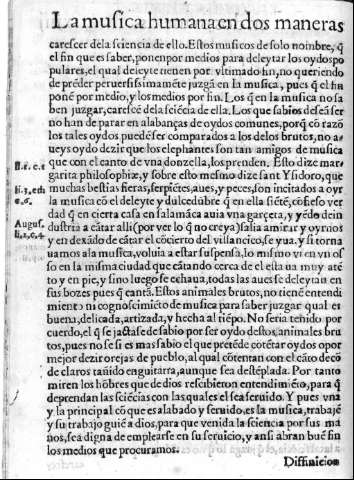 La musica humana en dos maneras
carescer dela sciencia de ello. Estos musicos de solo nombre, q̃
el fin que es saber, ponen por medios para deleytar los oydos po
pulares, el qual deleyte tienen por vltimado fin, no queriendo
de prẽder peruersissimamẽte juzgã en la musica, pues q̃ el fin
ponẽ por medio, y los medios por fin. Los q̃ en la musica no sa
ben juzgar, carescẽ dela sciẽcia de ella. Los que sabios deseã ser
no han de parar en alabanças de oydos comunes, porq̃ cõ razõ
los tales oydos puedẽ ser comparados a los delos brutos, no a-
ueys oydo dezir que los elephantes son tan amigos de musica
que con el canto de vna donzella, los prenden. Esto dize mar-
garita philosophiæ, y sobre esto mesmo dize sant Ysidoro, que
muchas bestias fieras, serpiẽtes, aues, y peces, son incitados a oyr
la musica cõ el deleyte y dulcedũbre q̃ en ella siẽtẽ, cõfieso ver
dad q̃ en cierta casa en salamãca auia vna garçeta, y yẽdo de in
dustria a cãtar alli (por ver lo q̃ no creya) salia a mirar y oyrnos
y en dexãdo de cãtar el cõcierto del villancico, se yua, y si torna
uamos ala musica, voluia a estar suspensa, lo mismo vi en vn os
so en la misma ciudad que cãtando cerca de el esta ua muy atẽ
to y en pie, y sino luego se echaua, todas las aues se deleytan en
sus bozes pues q̃ cantã. Estos animales brutos, no tienẽ entendi
miento ni cognoscimiẽto de musica para saber juzgar qual es
buena, delicada, artizada, y hecha al tiẽpo. No seria tenido por
cuerdo, el q̃ se jactase de sabio por ser oydo destos animales bru
tos, pues no se si es mas sabio el que pretẽde cõtẽtar oydos o por
mejor dezir orejas de pueblo, al qual cõtentan con el cãto de cõ
de claros tañido en guitarra, aunque sea destẽplada. Por tanto
miren los hõbres que de dios rescibieron entendimiẽto, para q̃
deprendan las sciẽcias con las quales el sea seruido. Y pues vna
y la principal cõ que es alabado y seruido, es la musica, trabajẽ
y su trabajo guiẽ a dios, para que venida la sciencia por sus ma
nos, sea digna de emplearse en su seruicio, y ansi abran buẽ fin
los medios que procuramos.
Diffinicion
li. 1. c. 1
li. 3, eth
c. 6.
Augus.